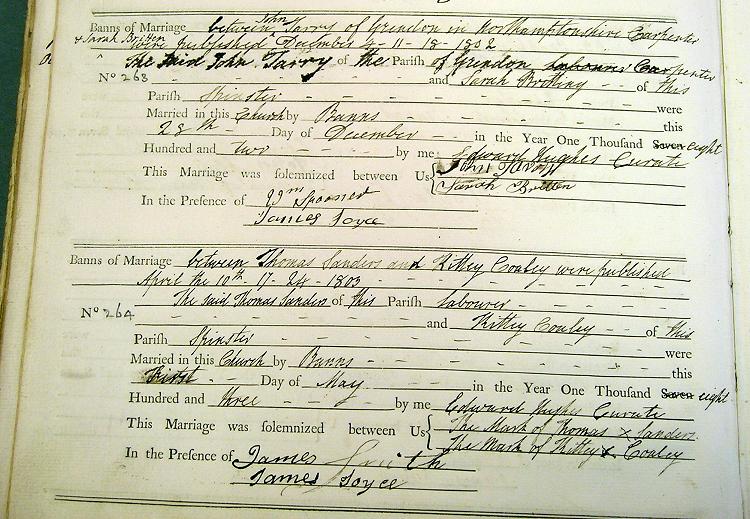 Banns of Marriage between John Tarry of Grendon in Northamptonshire Carpenter
& Sarah Britten were published December 4 - 11 - 18 - 1802
The said John Tarry of the Parish of Grendon labourer Carpenter
No 263 and Sarah Britting of this
Parish Spinster were
Married in this Church by Banns this
28th Day of December in the Year One Thousand Seven eight
Hundred and two by me Edward Hughes Curate
This Marriage was solemnized between Us { John Tarry
Sarah Britten
In the Presence of Wm Spooner
James Joyce
Banns of Marriage between Thomas Sanders and Kittey Coaley were published
April the 10th 17 - 24 - 1803
The said Thomas Sanders of this Parish labourer
No 264 and Kittey Coaley of this
Parish Spinster were
Married in this Church by Banns this
First Day of May in the Year One Thousand Seven eight
Hundred and three by me Edward Hughes Curate
This Marriage was solemnized between Us { The Mark of Thomas X Sanders
The Mark of Kittey X Coaley
In the Presence of James Smith
James Joyce